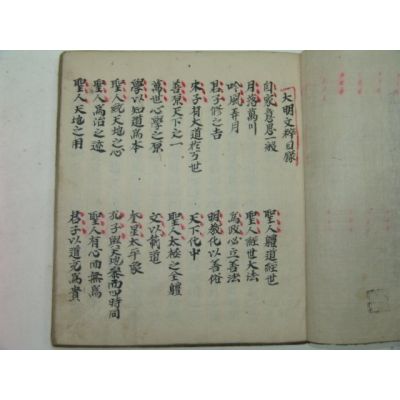 大明文粹目錄
自家意思一般
月落萬川
吟風弄月
君子修之吉
朱子有大道於万世
善原天下之一
萬世心學之原
學以知道爲本
聖人統天地之心
聖人爲治之迹
聖人天地之用
聖人體道經世
聖人經世大法
爲政必立善法
明教化以善術
天下化中
聖人太極之全體
文以載道
奎星太平象
孔子與天地 而四時同
聖人有心而無爲
君子以道充爲貴